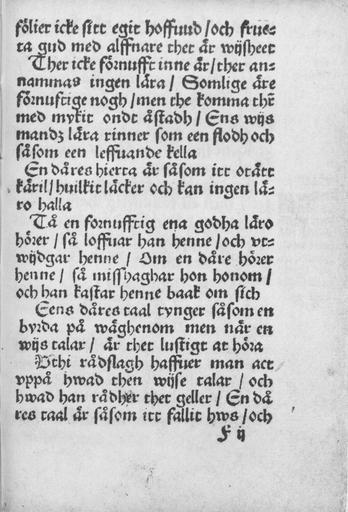 fölier icke sitt egit hoffuud/och frue-
ta gud med alffuare thet är wijsheet
Ther icke förnufft inne är/ther an-
nammas ingen lära/ Somlige äre
förnuftige nogh/men the komma thr̄
med mykit ondt åstadh/ Ens wijs
mandz lära rinner som een flodh och
såsom een leffuande kella
En dåres hierta är såsom itt otätt
käril/huilkit läcker och kan ingen lä-
ro halla
Tå en fornufftig ena godha läro
hörer/ så loffuar han henne/och vt-
wijdgar henne/ Om en dåre hörer
henne/ så misshaghar hon honom/
och han kastar henne baak om sich
Eens dåres taal tynger såsom en
byrda på wäghenom men när en
wijs talar/ är thet lustigt at höra
Vthi rådslagh haffuer man act
vppå hwad then wijse talar/ och
hwad han rådher thet geller/ En då
res taal är såsom itt fallit hws/och
F ij